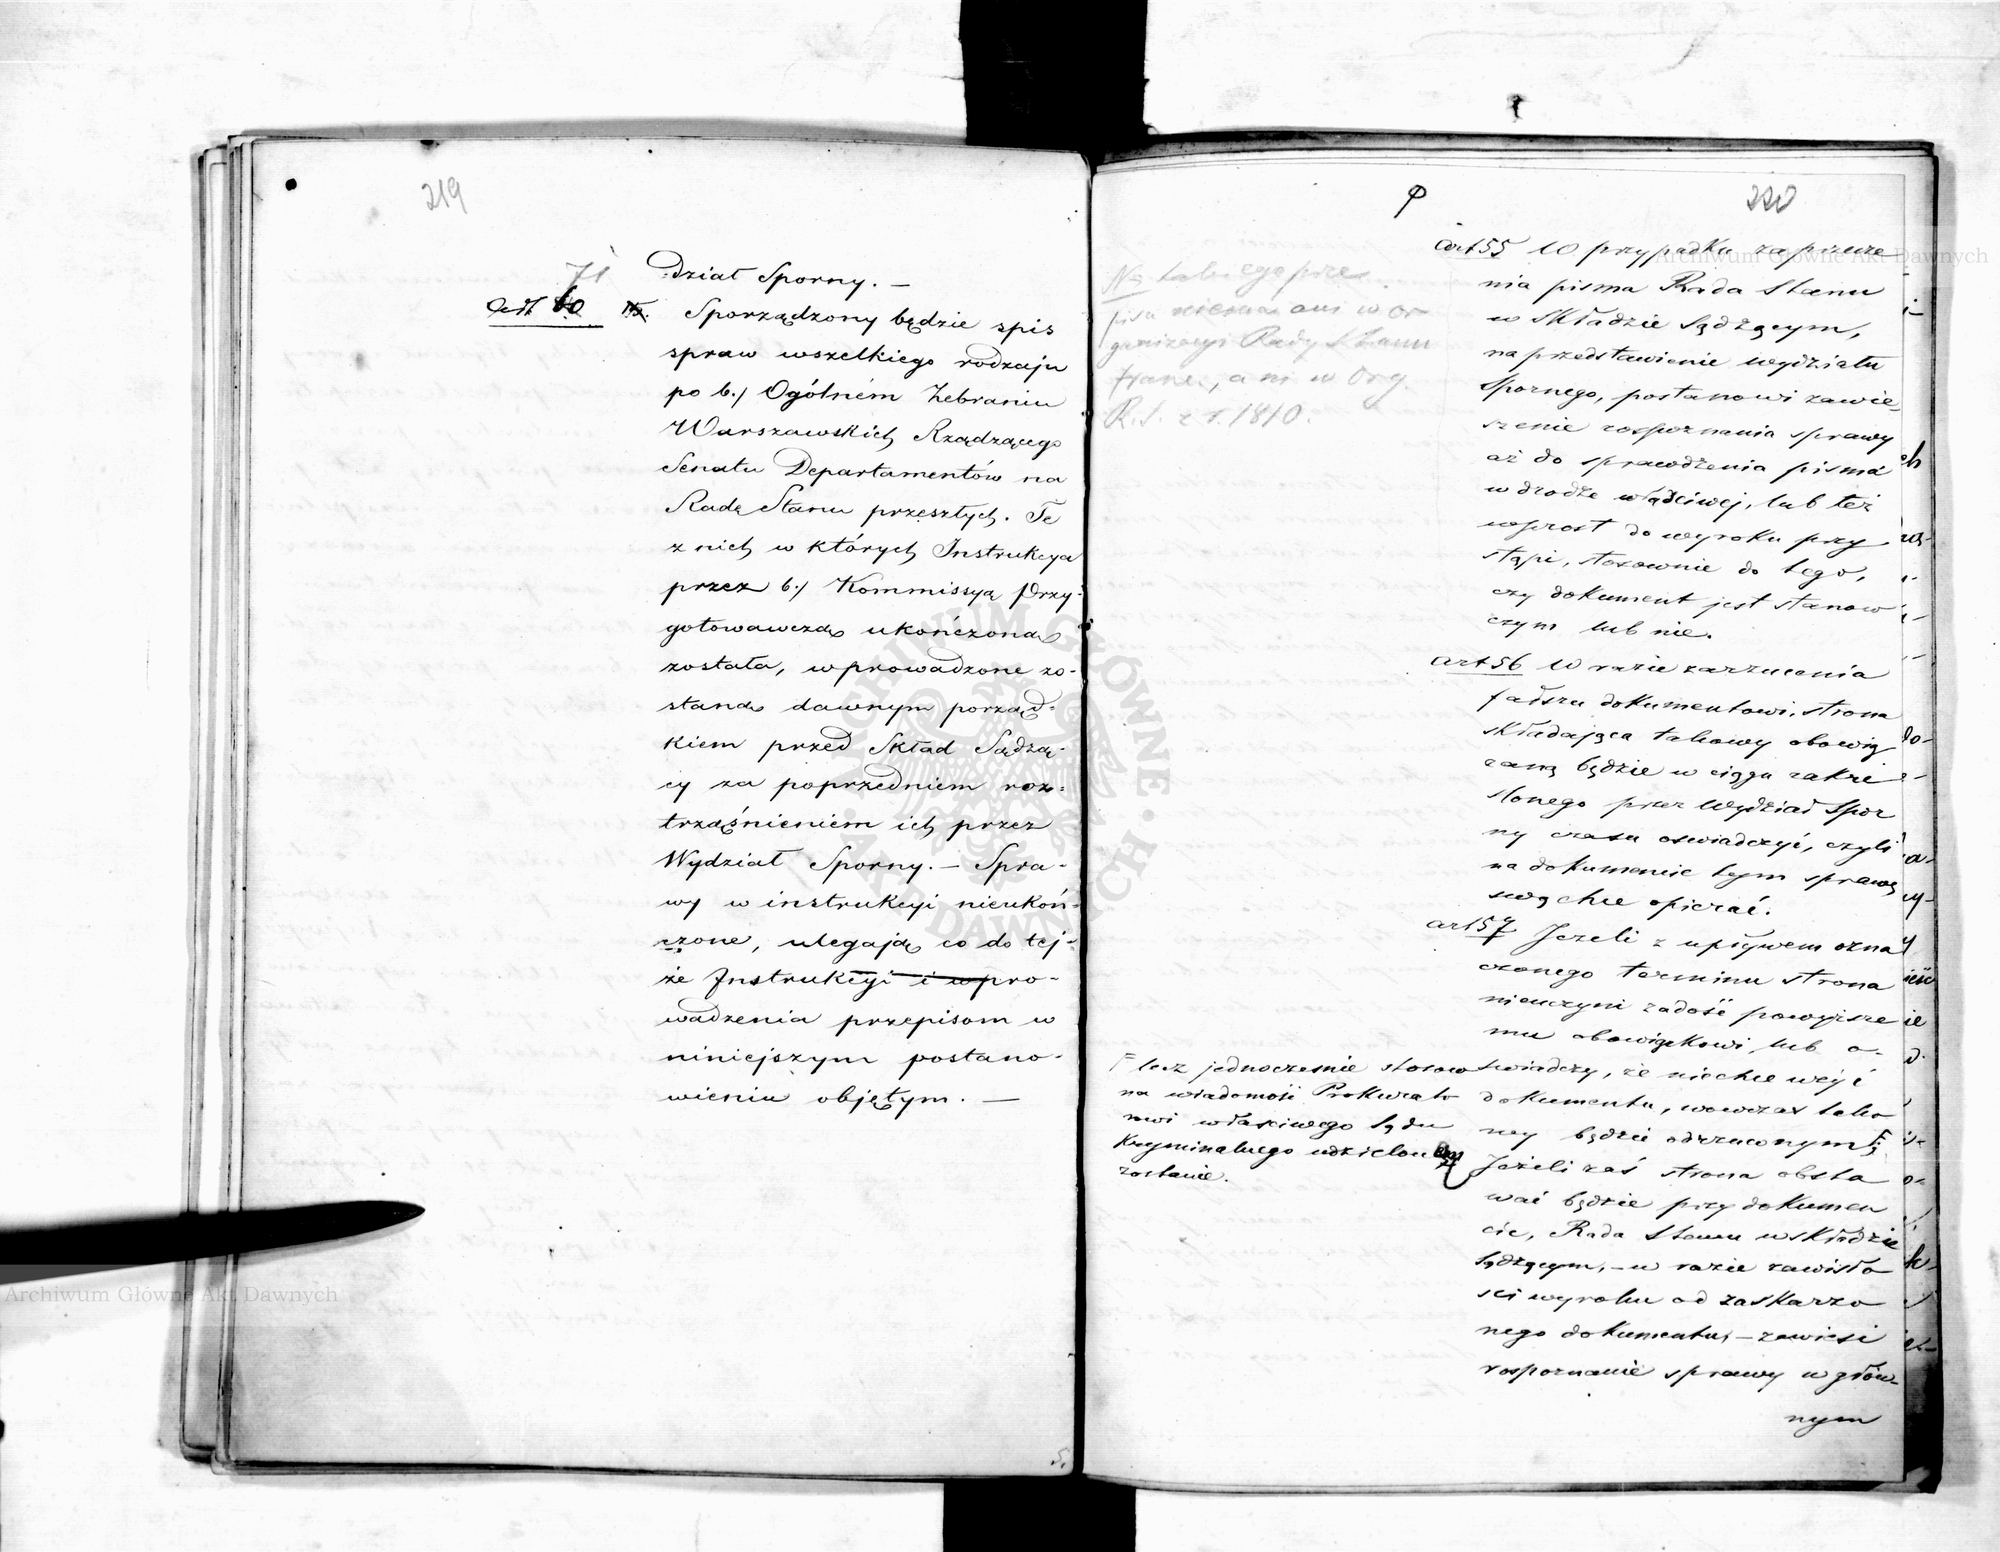 219
dział Sporny. —
71
Art 60 75. Sporządzony będzie spis
spraw wszelkiego rodzaju
po b./ Ogólném Zebraniu
Warszawskich Rządzącego
Senatu Departamentów na
Radę Stanu przeszłych. Te
z nich w których Instrukcya
przez b./ Kommissyą Przy-
gotowawczą ukończoną
została, wprowadzone zo-
staną dawnym porząd-
kiem przed Skład Sądzą-
cy za poprzedniem roz-
trząśnieniem ich przez
Wydział Sporny. — Spra-
wy w instrukcyi nieukoń-
czone, ulegają co do tej-
że Instrukcyi i wpro-
wadzenia przepisom w
niniejszym postano-
wieniu objętym. —
220
Na takiego prze
pisu niema ani w or
ganizacyi Rady Stanu
franc., ani w Org.
R. S. z r. 1810.
art 55 W przypadku zaprzecze
nia pisma Rada Stanu
w składzie sądzącym,
na przedstawienie wydziału
spornego, postanowi zawie-
szenie rozpoznania sprawy
aż do sprawdzenia pisma
w drodze właściwej, lub też
wprost do wyroku przy
stąpi, stosownie do tego,
czy dokument jest stanow
czym lub nie.
art 56 W razie zarzucenia
fałszu dokumentowi, strona
składająca takowy obowią
zaną będzie w ciągu zakre
ślonego przez Wydział Spor
ny czasu oświadczyć, czyli
na dokumencie tym sprawę
swą chce opierać.
art 57 Jeżeli z upływem ozna
czonego terminu strona
nieuczyni zadość powyższe
mu obowiązkowi, lub o-
świadczy, że niechce użyć
dokumentu, wówczas tako
wy będzie odrzuconym F;
F lecz jednocześnie stosow
na wiadomość Prokurato
rowi właściwego Sądu
Kryminalnego udzieloną
zostanie.
Jeżeli zaś strona obsta
wać będzie przy dokumen
cie, Rada Stanu w składzie
Sądzącym, – w razie zawisło
ści wyroku od zaskarżo
nego dokumentu, – zawiesi
rozpoznanie sprawy w głów-
nym
Archiwum Główne Akt Dawnych
Archiwum Główne Akt Dawnych
ARCHIWUM GŁÓWNE AKT DAWNYCH